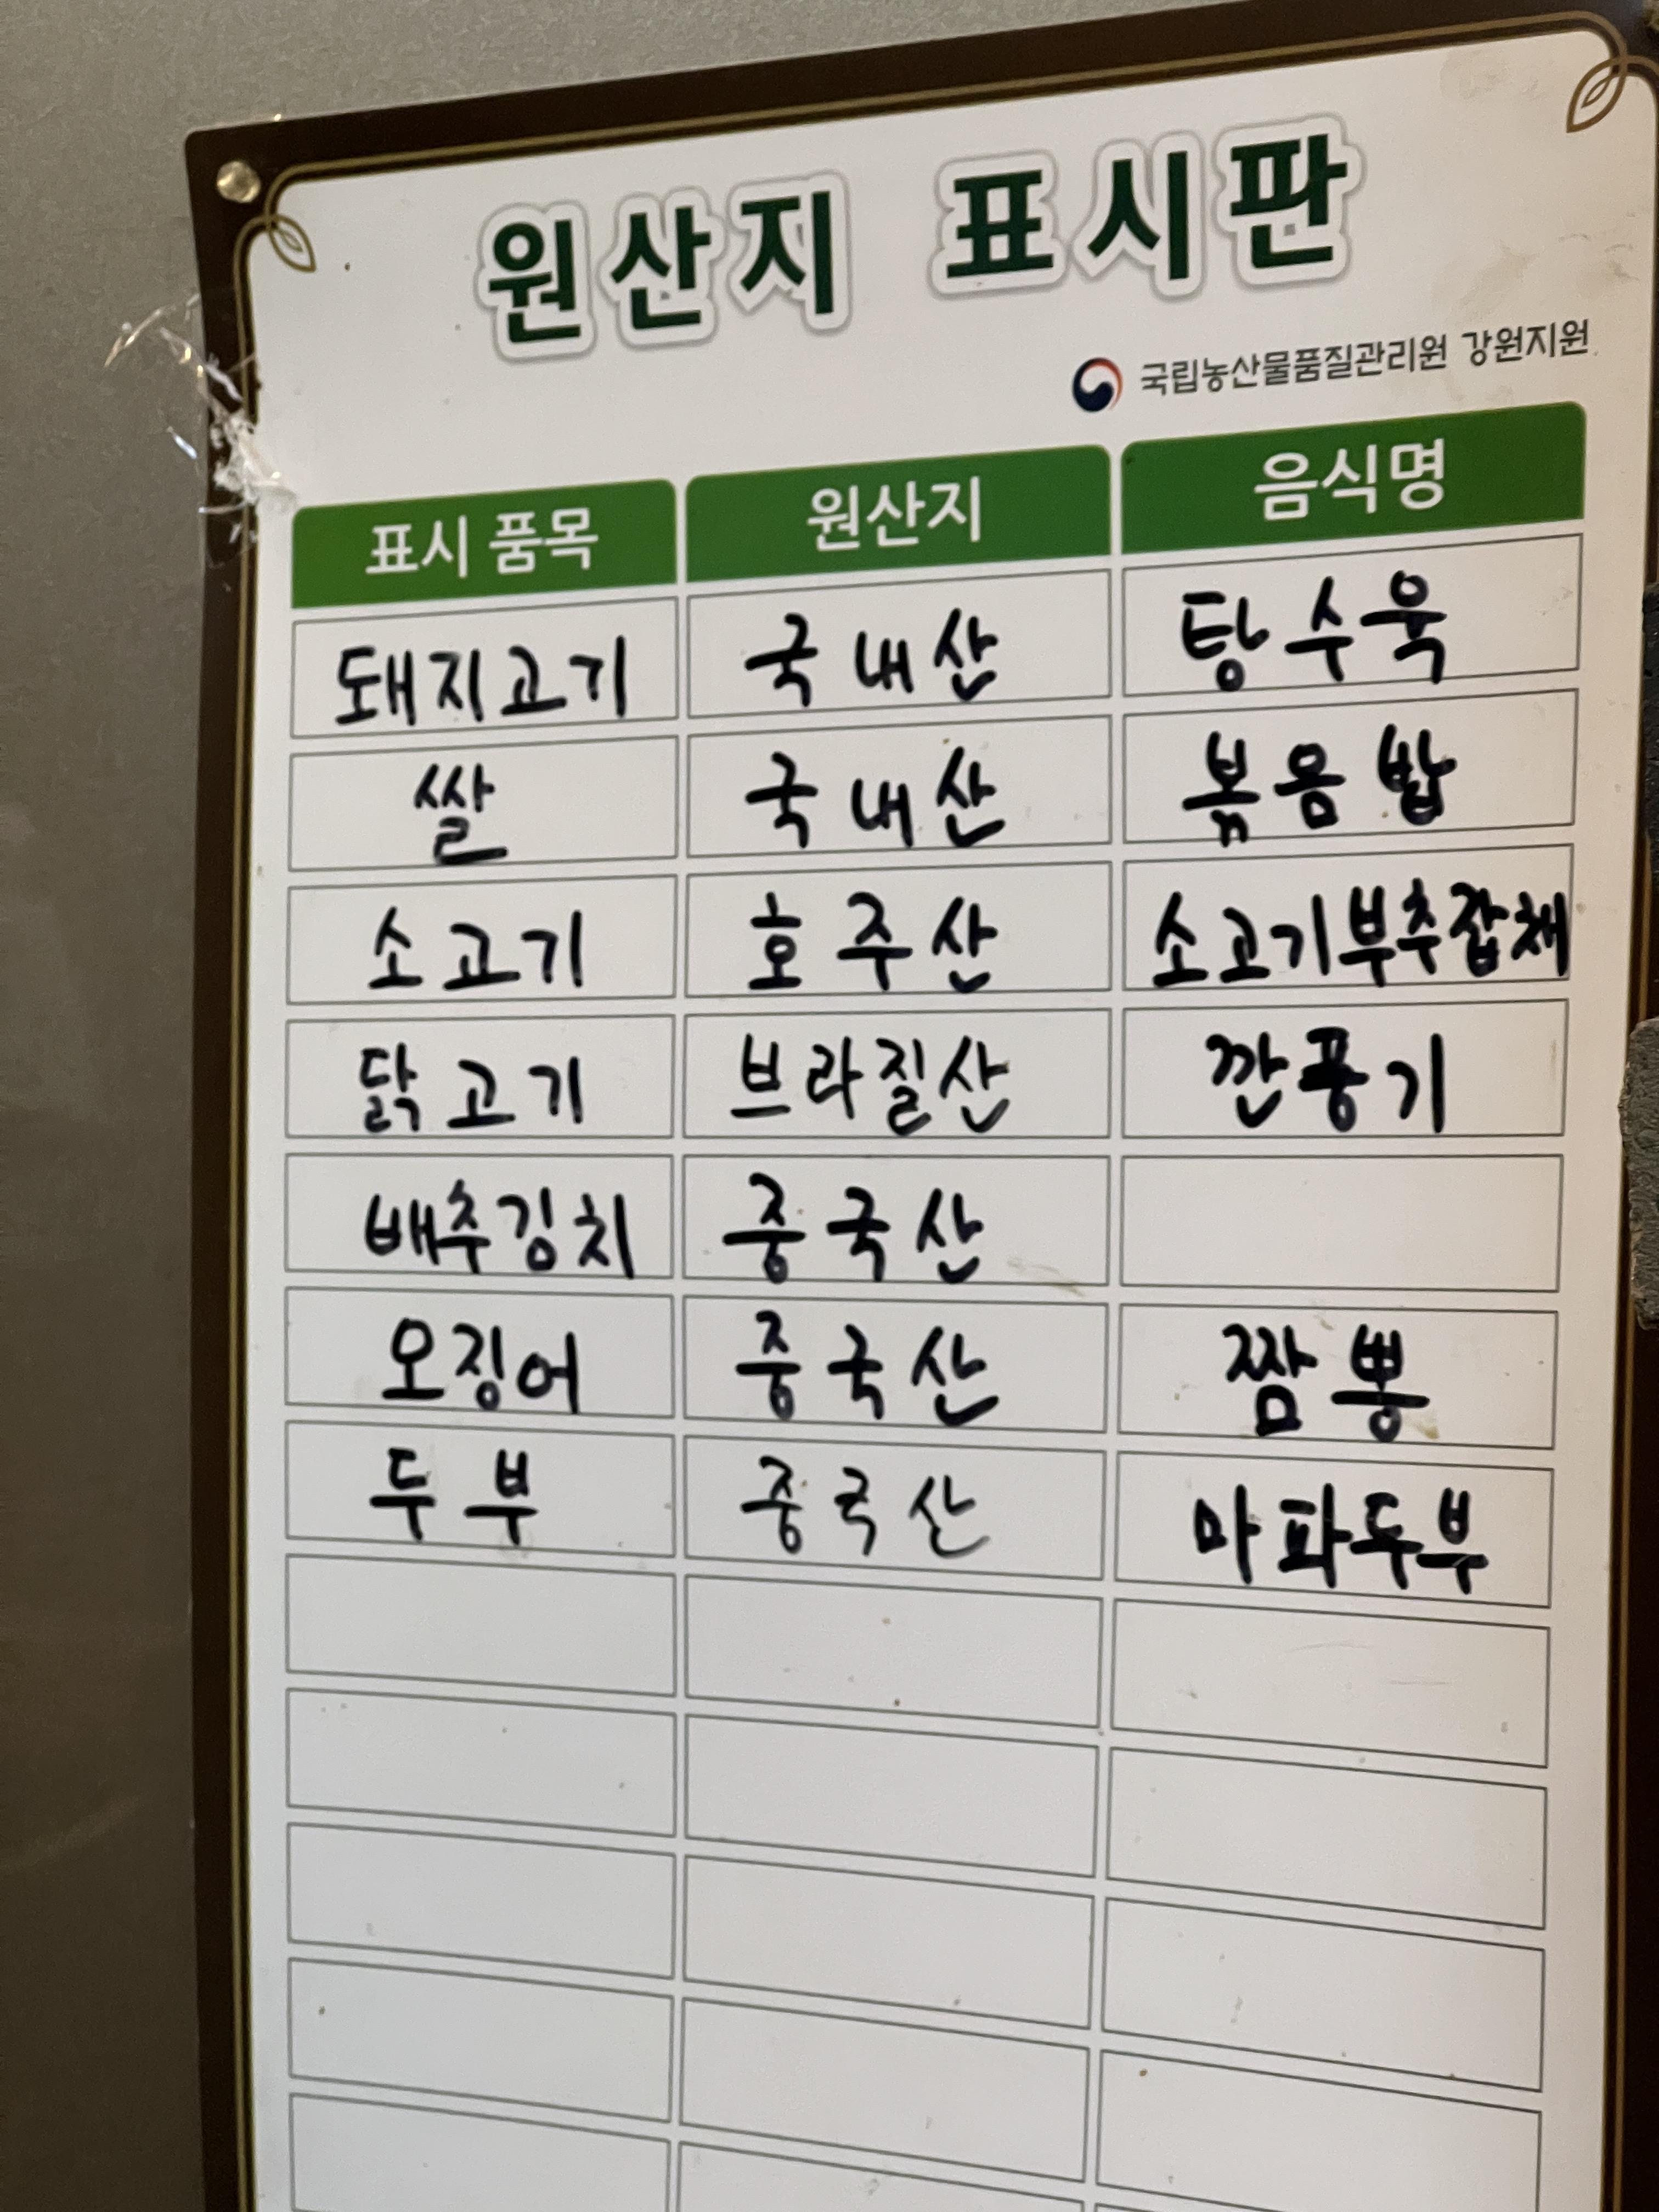 원산지 표시판
국립농산물품질관리원 강원지원
표시 품목 원산지 음식명
돼지고기 국내산 탕수육
쌀 국내산 볶음밥
소고기 호주산 소고기부추잡채
닭고기 브라질산 깐풍기
배추김치 중국산
오징어 중국산 짬뽕
두부 중국산 마파두부